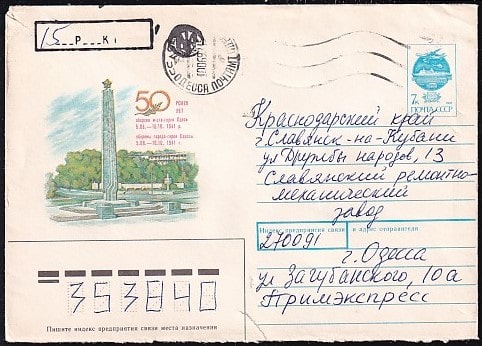 15 Р К
ОДЕССА ПОЧТАМТ
50
РОКІВ
ЛЕТ
оборони міста-героя Одеси
5.08.—16.10. 1941 р.
обороны города-героя Одессы
5.08.—16.10. 1941 г.
7к
ПОЧТА СССР
Краснодарский край
г. Славянск-на-Кубани
ул Дружбы народов, 13
Славянский ремонтно-
механический
завод
Индекс предприятия связи и адрес отправителя
270091
г. Одесса
ул. Загубанского, 10а
Примэкспресс
353840
Пишите индекс предприятия связи места назначения